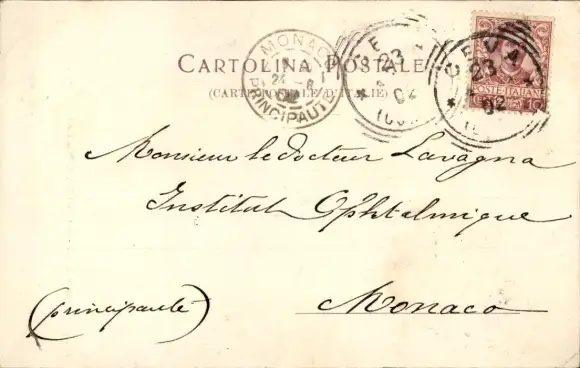 CARTOLINA POSTALE
(CARTE POSTALE D'ITALIE)
MONACO
PRINCIPAUTÉ
CEVA
23
02
POSTE ITALIANE
Monsieur le docteur Lavagna
Institut Ophtalmique
(principauté)
Monaco